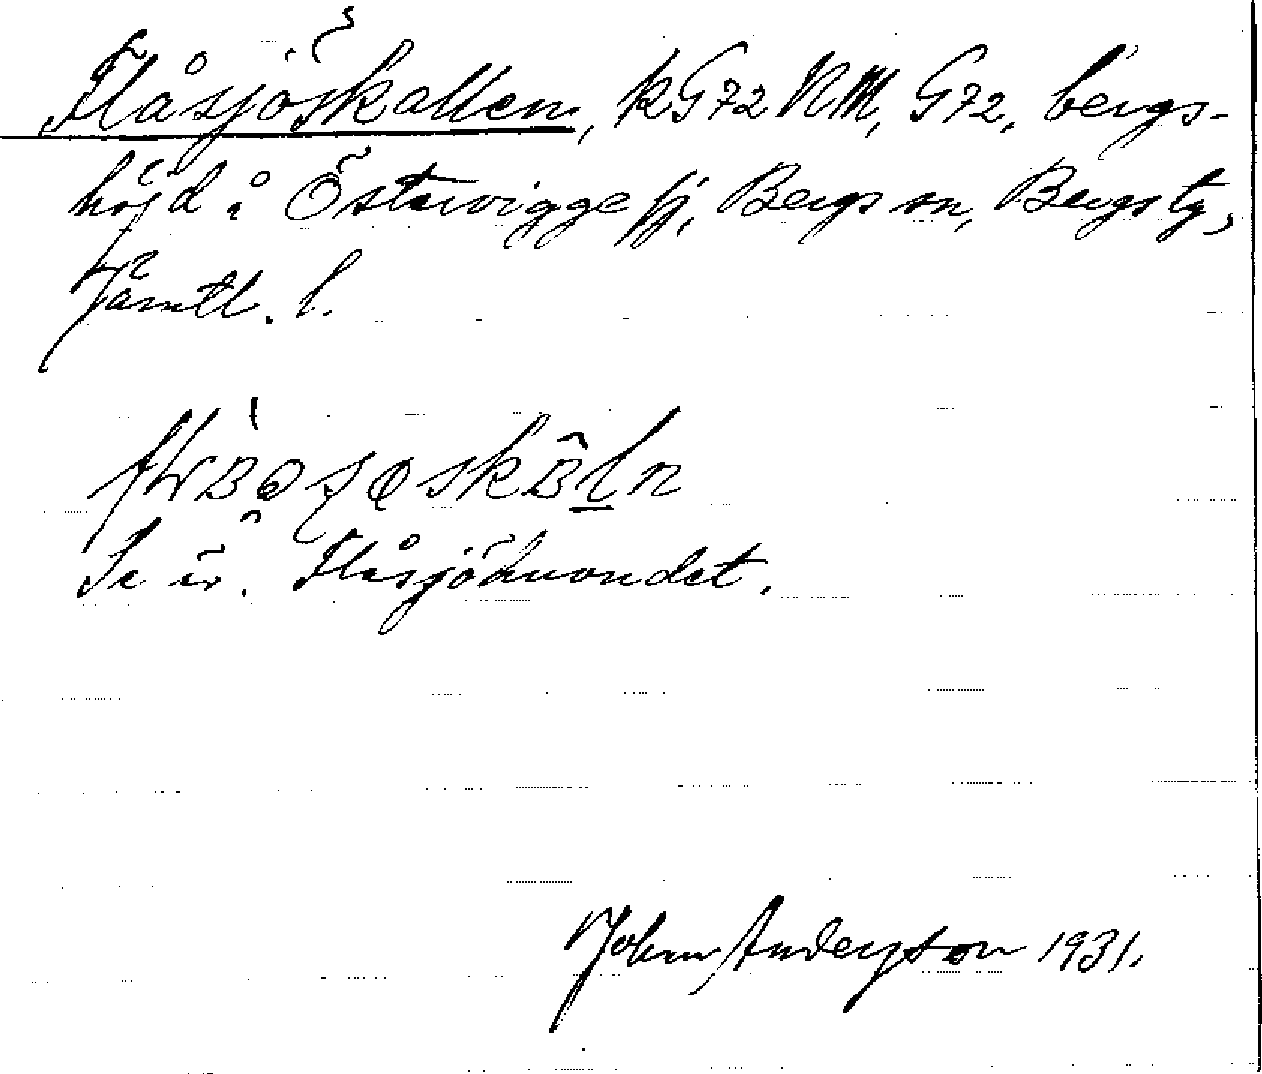 Flåsjöskallen, KG72 NM, G72, bergs-
höjd å Östervigge fj, Bergs sn, Bergs tg,
Jämtl. l.
Se äv. Flåsjöhuvudet.
Johan Anderzton 1931.